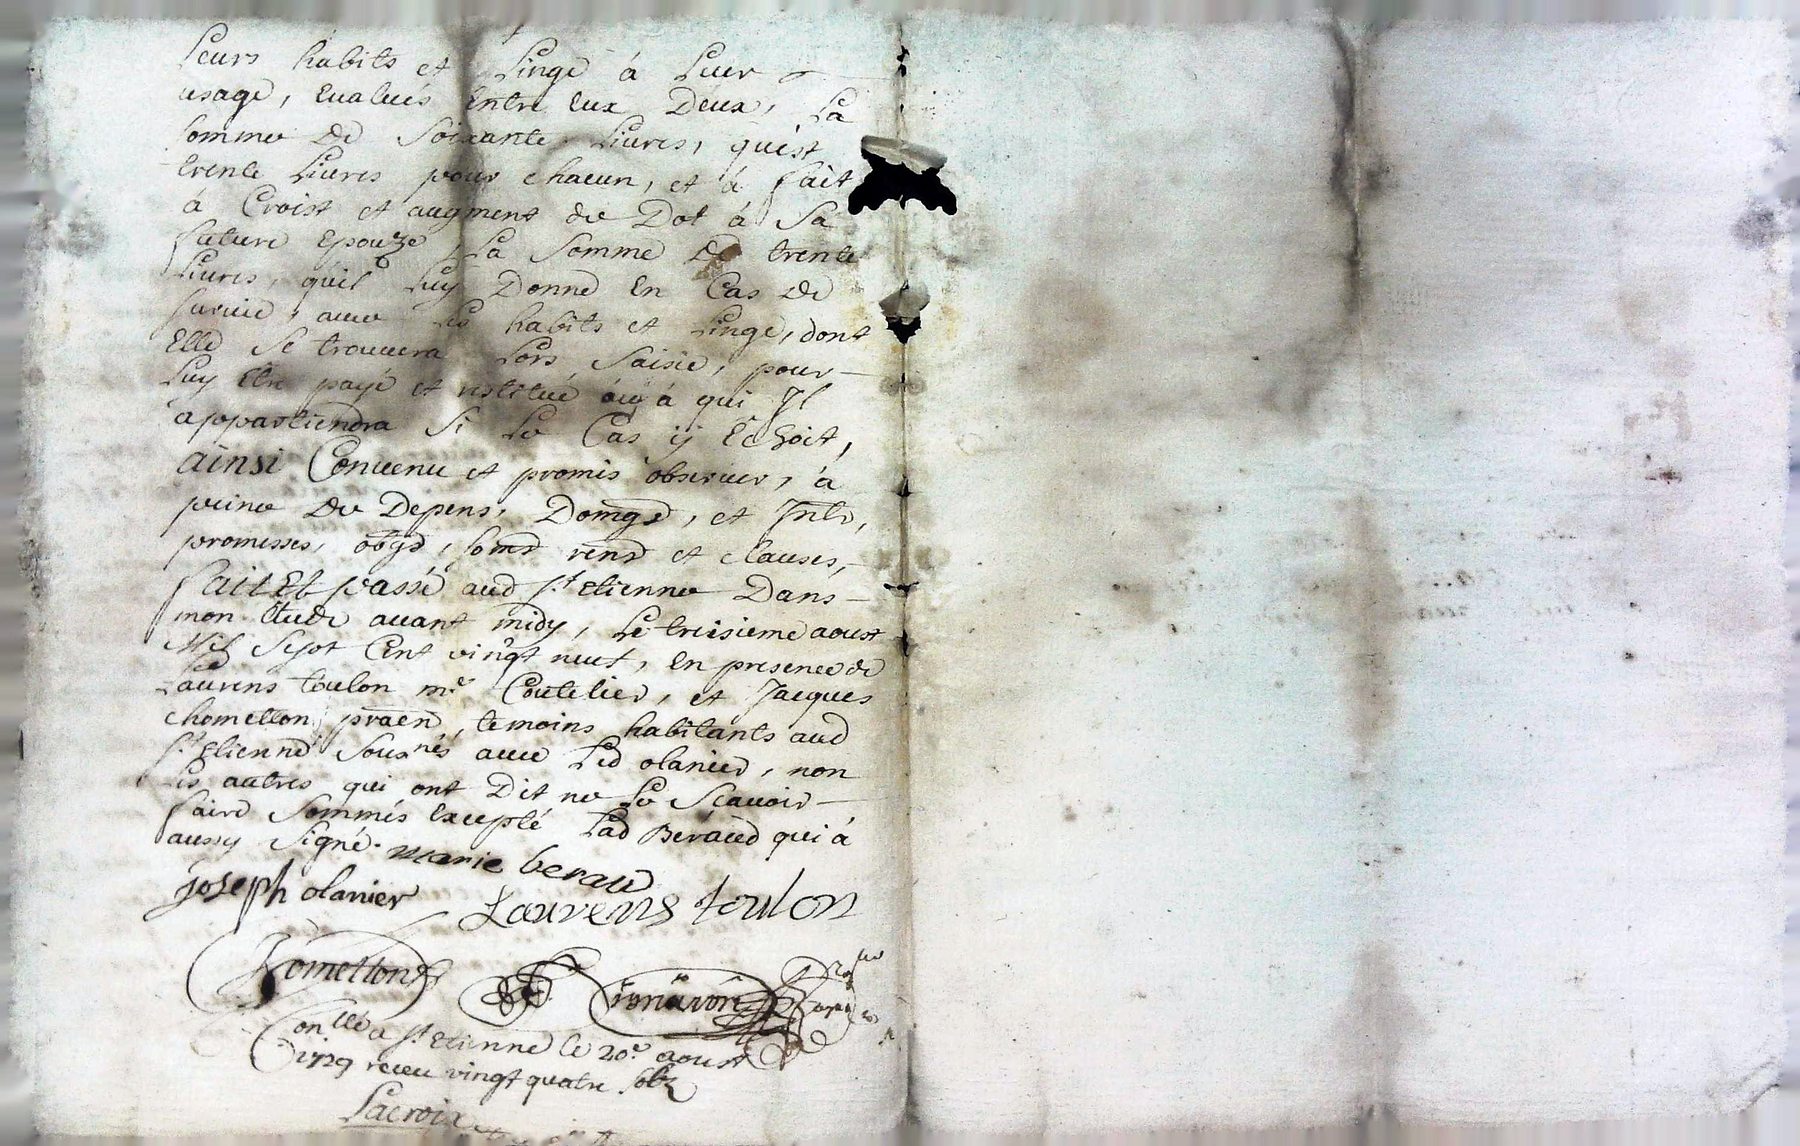 Leurs habits et Linge à Leur
usage, Eualués Entre Eux Deux, La
somme de Soixante Liures, qu'est
trente Liures pour chacun, et à fait
à Croist et augment de Dot à Sa
future Epouze, La Somme de trente
Liures, qu'il Luy Donne En Cas de
suruie, auec Les habits et Linge, dont
Elle Se trouuera Lors Saisie, pour
Luy Etre payé et restitué ou à qui Jl
appartiendra Si Le Cas ÿ Echoit,
ainsi Conuenu et promis obseruer, à
peine de Depens, Domgs, et Jnts,
promesses, obgs, soms rens et clauses,
fait Et passé aud St Etienne Dans
mon Etude auant midy, Le troisieme aoust
Mil Sept Cent vingt neuf, En presence de
Laurens toulon me Coutelier, et Jacques
chometton praen, temoins habitants aud
St Etienne Sousnés auec Led olanier, non
Les autres qui ont Dit ne Le Scauoir
faire Sommés Excepté Lad Beraud qui à
aussy Signé. marie beraud
joseph olanier Laurens toulon
Chometton fromāion
Conllé a St Etienne le 20e aoust
1729 receu vingt quatre solz
Lacroix